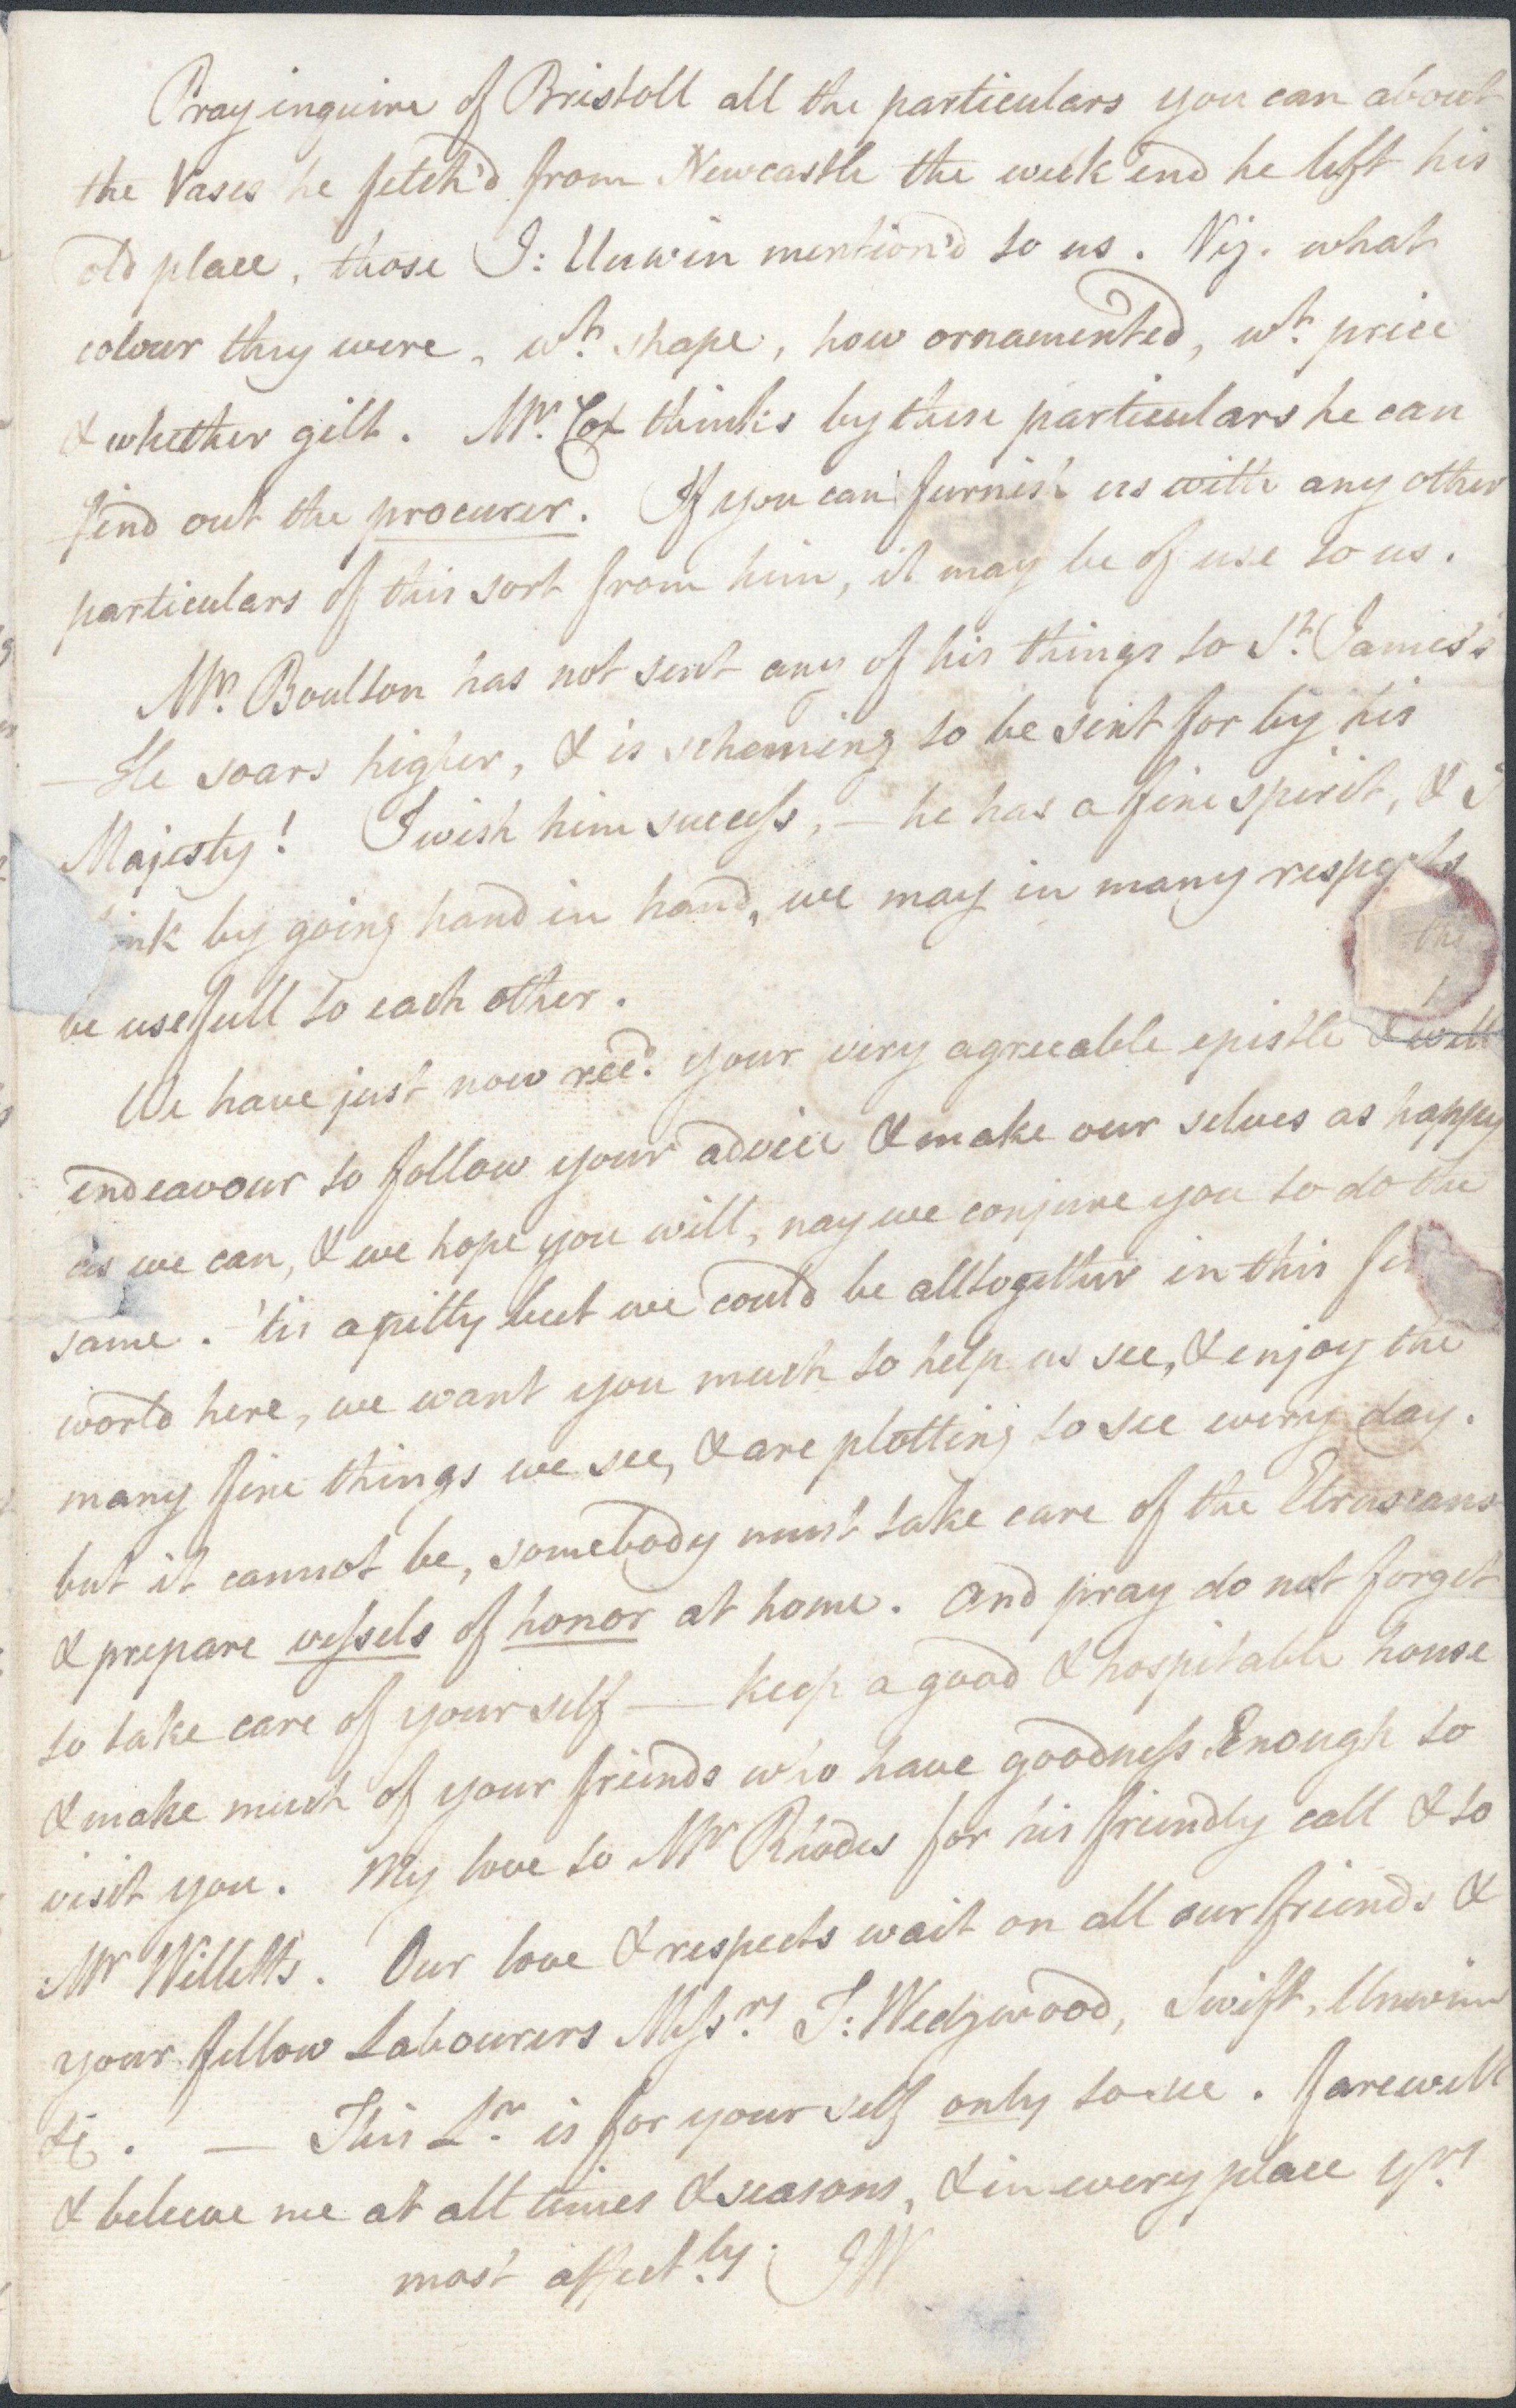 Pray inquire of Bristoll all the particulars you can about
the Vases he fetch'd from Newcastle the week end he left his
old place, those J: Unwin mention'd to us. Viz. what
colour they were, wt. shape, how ornamented, wt. price
& whether gilt. Mr. Cox thinks by these particulars he can
find out the procurer. If you can furnish us with any other
particulars of this sort from him, it may be of use to us.
Mr. Boulton has not sent any of his things to St. James's
— He soars higher, & is scheming to be sent for by his
Majesty! I wish him success, — he has a fine spirit, & I
ink by going hand in hand, we may in many respects
be usefull to each other.
We have just now recd. your very agreeable epistle & will
endeavour to follow your advice & make our selves as happy
as we can, & we hope you will, nay we conjure you to do the
same. — 'tis a pitty but we could be alltogether in this
world here, we want you much to help us see, & enjoy the
many fine things we see, & are plotting to see every day.
but it cannot be, somebody must take care of the Etruscans
& prepare vessels of honor at home. And pray do not forget
to take care of your self — keep a good & hospitable house
& make much of your friends who have goodness Enough to
visit you. My love to Mr Rhodes for his friendly call & to
Mr Willetts. Our love & respects wait on all our friends &
your fellow Labourers Messrs. T: Wedgwood, Swift, Unwin
&c. — This Lr. is for your self only to see. farewell
& beleeve me at all times & seasons, & in every place yrs.
most affectly. JW